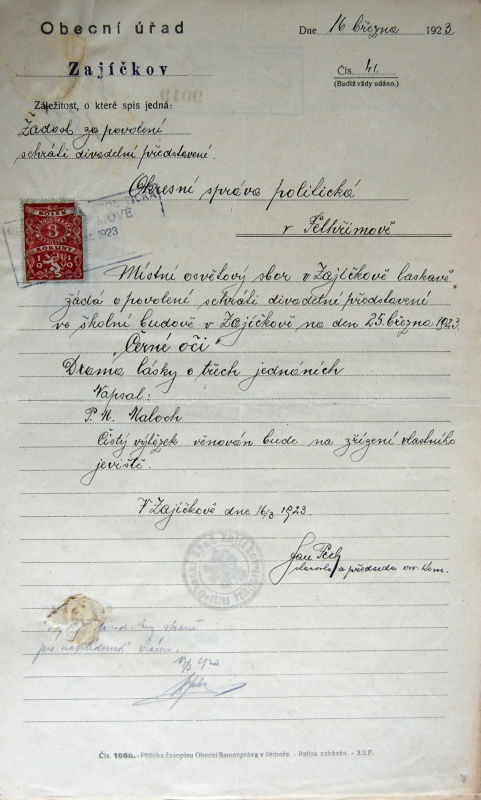 Obecní úřad
Zajíčkov
Dne 16 března 1923
Čís. 41.
(Budiž vždy udáno.)
Záležitost, o které spis jedná:
Žádost za povolení
sehráti divadelní představení.
Okresní správa politická
v Pelhřimově
KOLEK
3
KORUNY
1923
Místní osvětový sbor v Zajíčkově laskavě
žádá o povolení sehráti divadelní představení
ve školní budově v Zajíčkově na den 25. března 1923
"Černé oči"
Drama lásky o třech jednáních
Napsal:
P. M. Maloch
Čistý výtěžek věnován bude na zřízení vlastního
jeviště.
V Zajíčkově dne 16/3 1923.
Jan Pech
starosta a předseda osv. kom.
Čís. 1060. - Příloha časopisu Obecní Samospráva v Příboře. - Patisk zakázán. - 3.2.F.